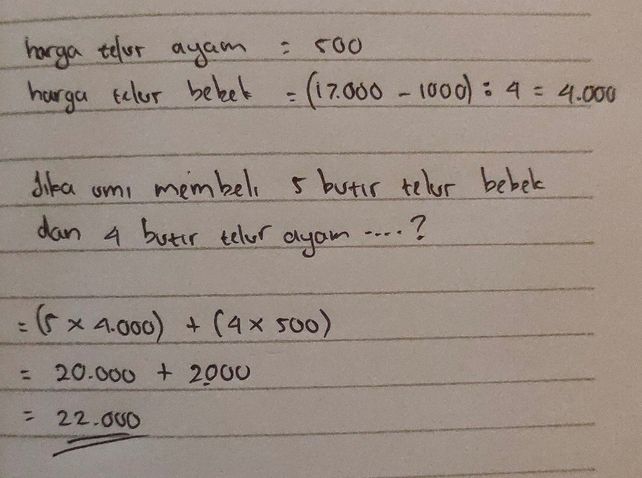 harga telur ayam = 500
harga telur bebek = (17.000 - 1000) : 4 = 4.000
Jika umi membeli 5 butir telur bebek
dan 4 butir telur ayam ....?
= (5 x 4.000) + (4 x 500)
= 20.000 + 2000
= 22.000